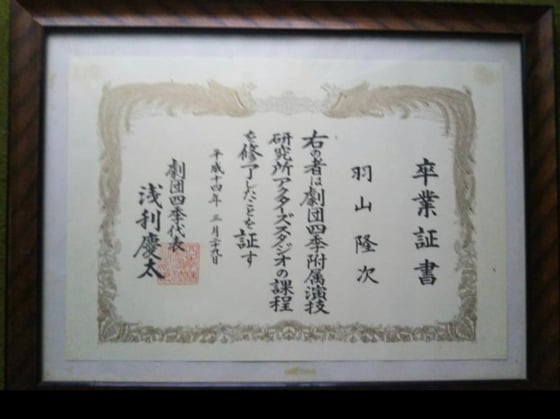 卒業証書
羽山隆次
右の者は劇団四季附属演技
研究所アクターズスタジオの課程
を修了したことを証す
平成十四年三月二十九日
劇団四季代表
浅利慶太